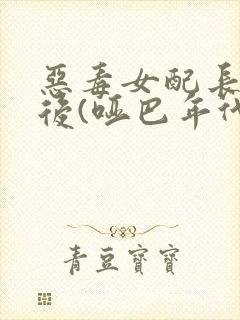 惡毒女配長
後(啞巴年代
青豆寶寶